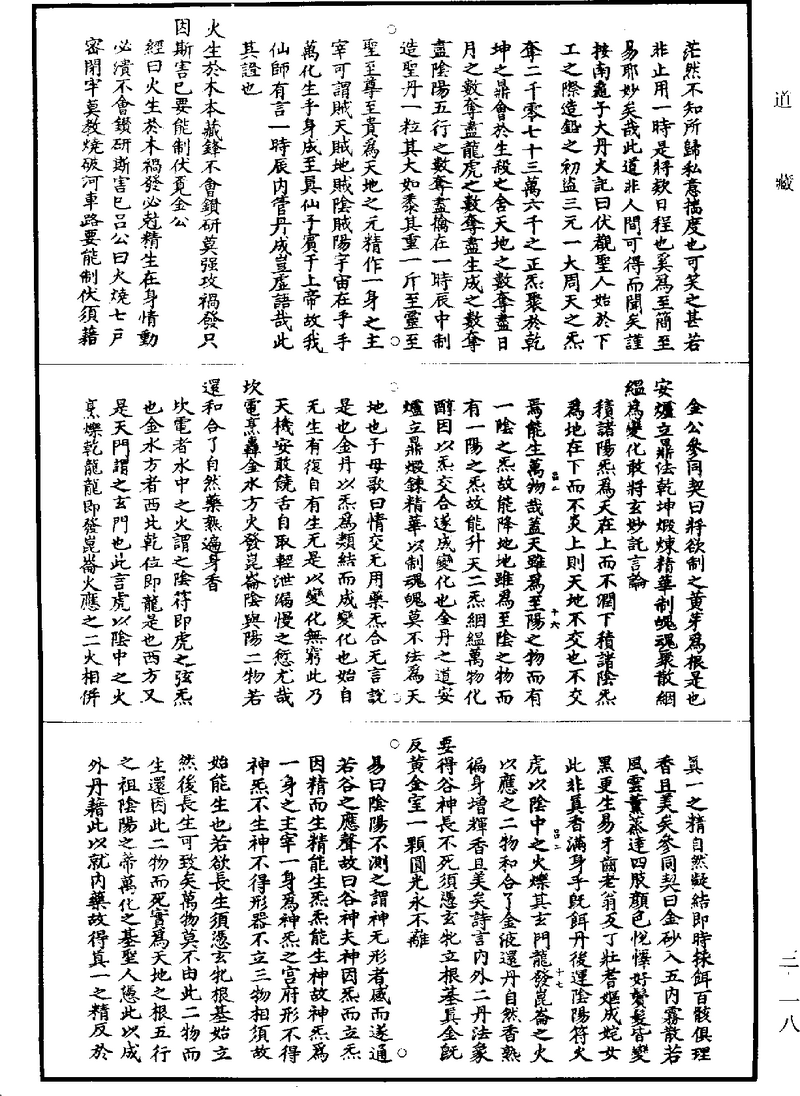 道藏
茫然不知所歸私意揣度也可笑之甚若
非止用一時是將欵日程也奚爲至簡至
易耶妙矣哉此道非人間可得而聞矣謹
按南龜子大丹火記曰伏觀聖人始於下
工之際造鉛之初盗三元一大周天之炁
奪二千零七十三萬六千之正炁聚於乾
坤之鼎會於生殺之舍天地之數奪盡日
月之數奪盡龍虎之數奪盡生成之數奪
盡陰陽五行之數奪盡擒在一時辰中制
造聖丹一粒其大如黍其重一斤至靈至
聖至尊至貴爲天地之元精作一身之主
宰可謂賊天賊地賊陰賊陽宇宙在乎手
萬化生乎身成至眞仙子賓于上帝故我
仙師有言一時辰内管丹成豈虛語哉此
其證也
火生於木本藏鋒不會鑽研莫强攻禍發只
因斯害已要能制伏覓金公
經曰火生於木禍發必尅精生在身情動
必潰不會鑽研斯害已吕公曰火燒七戸
密閉牢莫教燒破河車路要能制伏須藉
金公參同契曰將欲制之黄芽爲根是也
安爐立鼎法乾坤煅煉精華制魄魂聚散絪
緼爲變化敢將玄妙託言論
積諸陽炁爲天在上而不潤下積諸陰炁
爲地在下而不炎上則天地不交也不交
焉能生萬物哉蓋天雖爲至陽之物而有
一陰之炁故能降地地雖爲至陰之物而
有一陽之炁故能升天二炁絪緼萬物化
醇因以炁交合遂成變化也金丹之道安
爐立鼎煅鍊精華以制魂魄莫不法爲天
地也子母歌曰情交无用藥炁合无言說
是也金丹以炁爲類結而成變化也始自
无生有復自有生无是以變化無窮此乃
天機安敢饒舌自取輕泄漏慢之愆尤哉
坎電烹轟金水方火發崑崙陰與陽二物若
還和合了自然藥熟遍身香
坎電者水中之火謂之陰符即虎之弦炁
也金水方者西北乾位即龍是也西方又
是天門謂之玄門也此言虎以陰中之火
烹爍乾龍龍即發崑崙火應之二火相併
眞一之精自然凝結即時採餌百骸俱理
香且美矣參同契曰金砂入五内霧散若
風雲薰蒸達四肢顔色悅懌好鬢髮皆變
黑更生易牙齒老翁反丁壯耆嫗成姹女
此非異香滿身乎旣餌丹後運陰陽符火
虎以陰中之火爍其玄門龍發崑崙之火
以應之二物和合了金液還丹自然香熟
徧身增輝香且美矣詩言内外二丹法象
要得谷神長不死須憑玄牝立根基眞金旣
反黄金室一顆圓光永不離
易曰陰陽不測之謂神无形者感而遂通
若谷之應聲故曰谷神夫神因炁而立炁
因精而生精能生炁炁能生神故神炁爲
一身之主宰一身爲神炁之宫府形不得
神炁不生神不得形器不立三物相須故
始能生也若欲長生須憑玄牝根基始立
然後長生可致矣萬物莫不由此二物而
生還因此二物而死實爲天地之根五行
之祖陰陽之蒂萬化之基聖人憑此以成
外丹藉此以就内藥故得眞一之精反於
三·一八